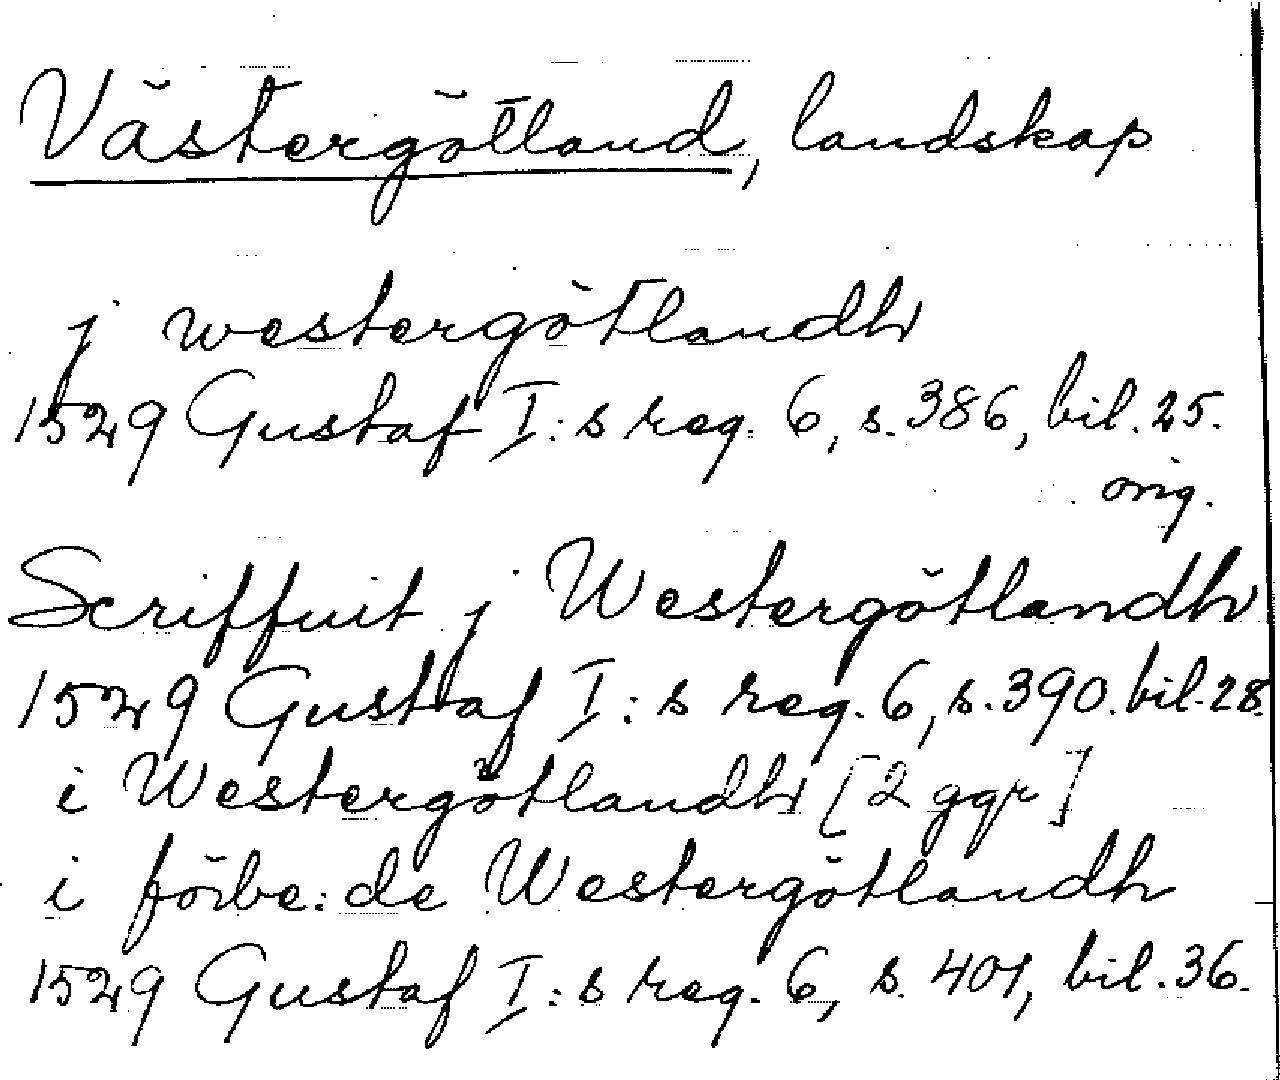 Västergötland, landskap
j westergötlandh
1529 Gustaf I:s reg. 6, s. 386, bil. 25.
orig.
Scriffuit j Westergötlandh
1529 Gustaf I:s reg. 6, s. 390. bil. 28.
i Westergötlandh [2 ggr]
i förbe:de Westergötlandh
1529 Gustaf I:s reg. 6, s. 401, bil. 36.